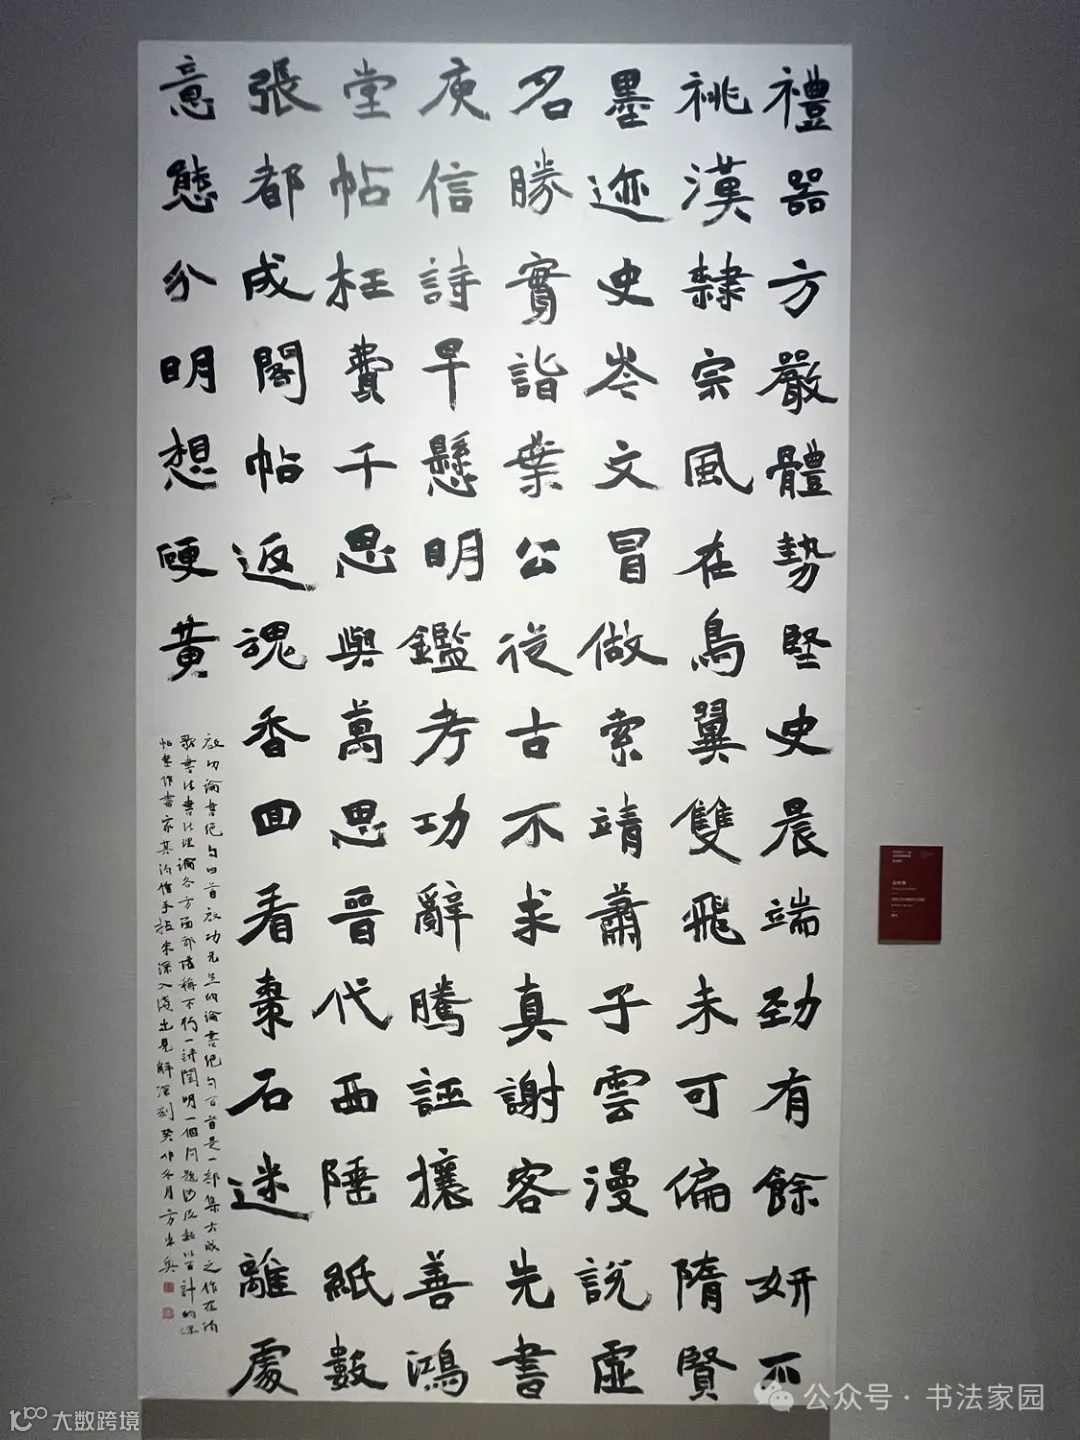 禮器方嚴體勢堅史晨端勁有餘妍不
祧漢隸宗風在鳥翼雙飛未可偏隋賢
墨迹史岑文冒做索靖蕭子雲漫說虛
名勝實詣葉公從古不求真謝客先書
庾信詩早懸明鑑考功辭騰誣攘善鴻
堂帖枉費千思與萬思晉代西陲紙數
張都成閣帖返魂香回看棗石迷離處
意態分明想硬黃
啟功論書絕句四首啟功先生的論書絕句百首是一部集大成之作在詩
歌書法書法理論各方面都堪稱不朽一詩闡明一個問題涉及數以百計的碑
帖墨作書家其詩信手拈來深入淺出見解深刻癸卯冬月方
公众号·书法家园
大数跨境